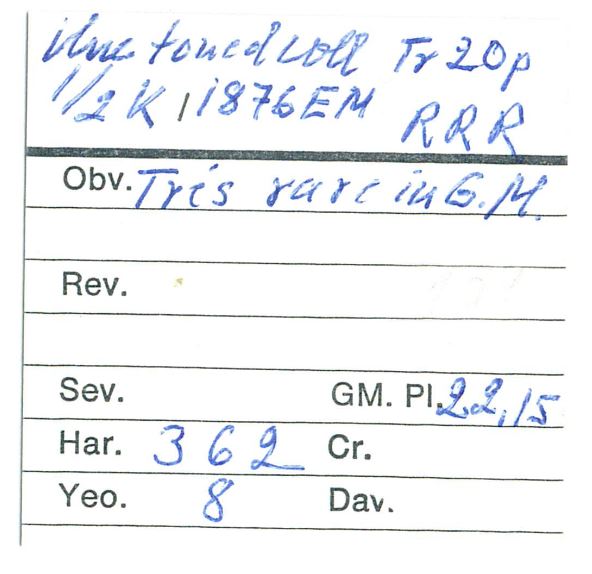 toned coll Tr 20p
1/2 K, 1876 EM RRR
Obv. Très rare in G.M.
Rev.
Sev. GM. Pl. 22,15
Har. 362 Cr.
Yeo. 8 Dav.